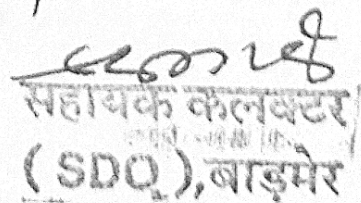 सहायक कलक्टर
(SDO), बाड़मेर